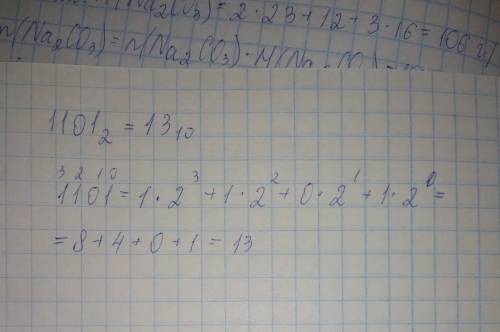 (Na₂CO₃) = 2·23+12+3·16 = 106 г/
n(Na₂CO₃) = n(Na₂CO₃)·M(Na
1101₂ = 13₁₀
3 2 1 0
1101 = 1·2³ + 1·2² + 0·2¹ + 1·2⁰ =
= 8 + 4 + 0 + 1 = 13